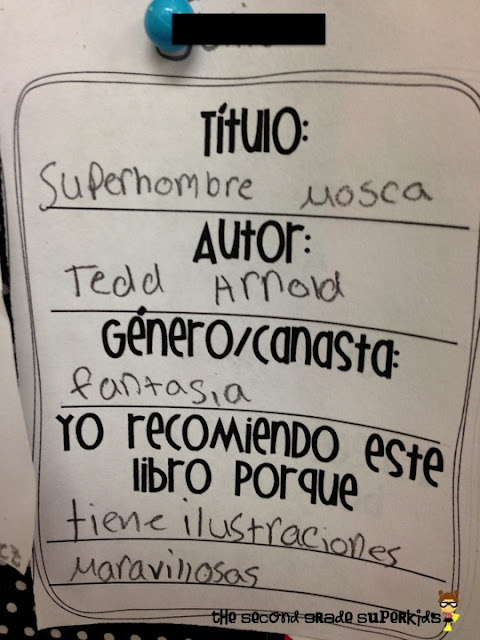 Título:
Superhombre Mosca
Autor:
Tedd Arnold
Género/Canasta:
fantasia
Yo recomiendo este
libro porque
tiene ilustraciones
maravillosas
the second grade superkids